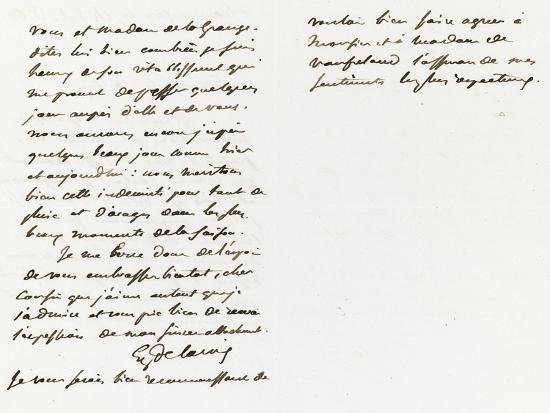 vous et madame de la Grange.
dites lui bien combien je suis
heureux de son rétablissement qui
me promet de passer quelques
jours auprès d'elle et de vous.
nous aurons encore j'espère
quelques beaux jours comme hier
et aujourdhui : nous méritons
bien cette indemnité pour tant de
pluie et d'orages dans les plus
beaux moments de la saison.
Je me borne donc de l'espoir
de vous embrasser bientot, cher
cousin que j'aime autant que je
l'admire et vous prie bien de recevoir
l'expression de mon sincère attachement.
Eug Delacroix
Je vous serais bien reconnaissant de
vouloir bien faire agréer à
Monsieur et à madame de
l'assurance de mes
sentiments les plus respectueux.